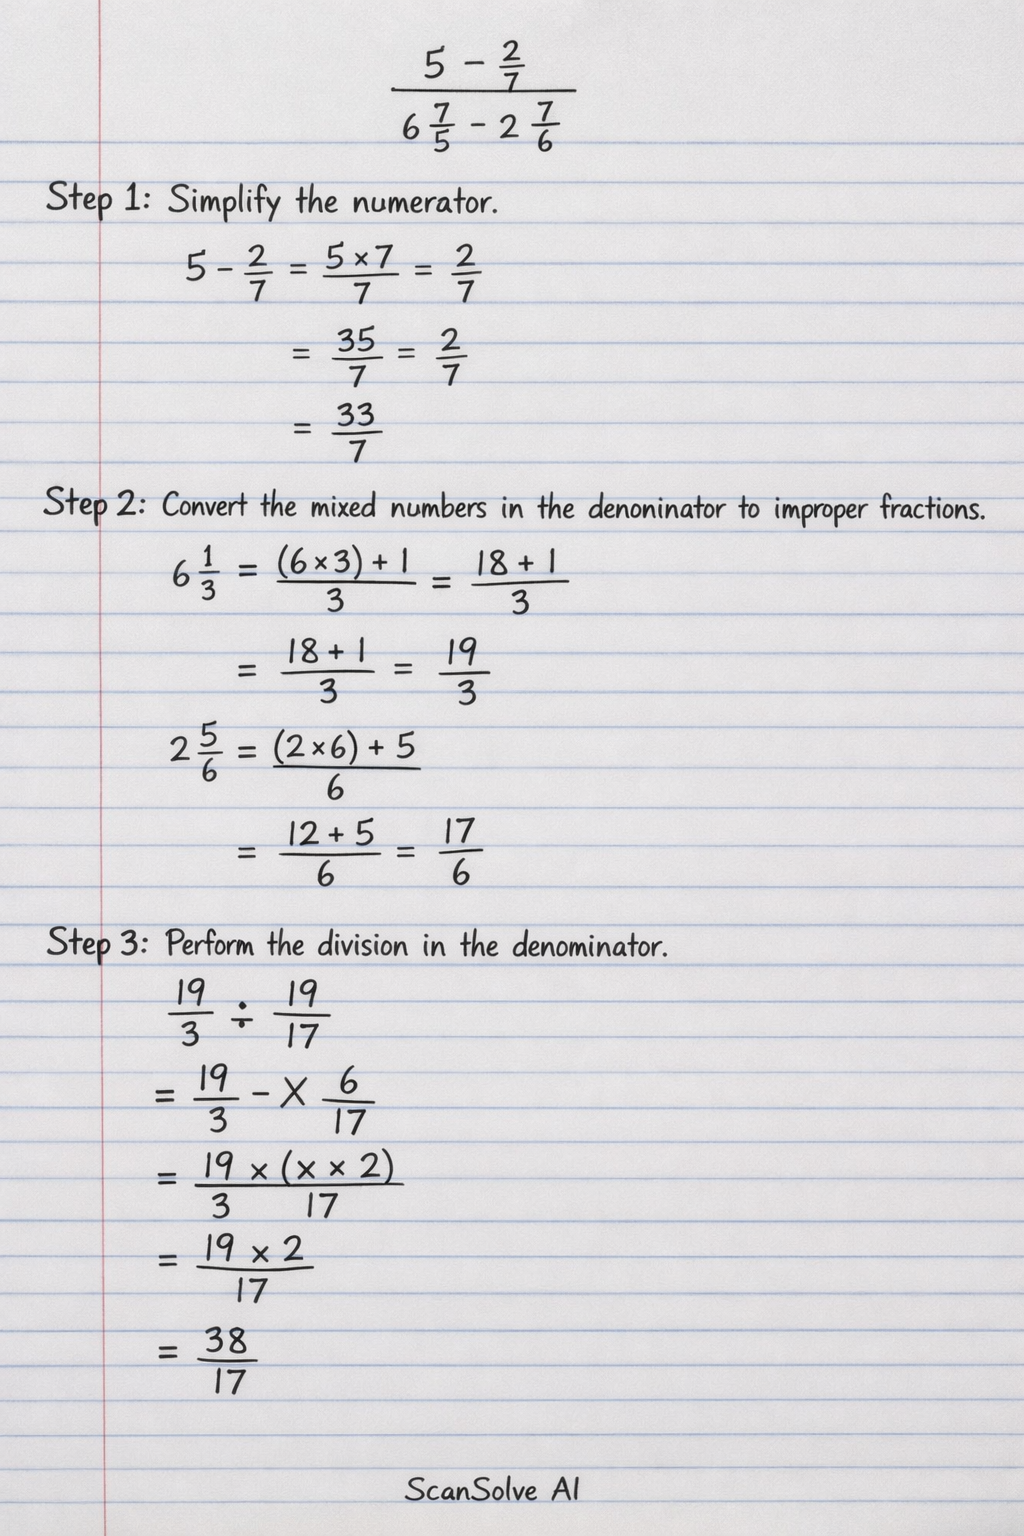 5 - 2/7
6 7/5 - 2 7/6
Step 1: Simplify the numerator.
5 - 2/7 = 5 × 7/7 = 2/7
= 35/7 = 2/7
= 33/7
Step 2: Convert the mixed numbers in the denoninator to improper fractions.
6 1/3 = (6 × 3) + 1/3 = 18 + 1/3
= 18 + 1/3 = 19/3
2 5/6 = (2 × 6) + 5/6
= 12 + 5/6 = 17/6
Step 3: Perform the division in the denominator.
19/3 ÷ 19/17
= 19/3 - X 6/17
= 19 × (x × 2)/3 17
= 19 × 2/17
= 38/17
ScanSolve AI